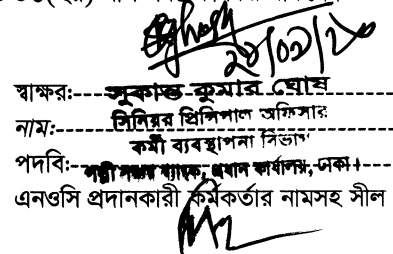 স্বাক্ষর: সুকান্ত কুমার ঘোষ
নাম: সিনিয়র প্রিন্সিপাল অফিসার
কর্মী ব্যবস্থাপনা বিভাগ
পদবি: পল্লী সঞ্চয় ব্যাংক, প্রধান কার্যালয়, ঢাকা।
এনওসি প্রদানকারী কর্মকর্তার নামসহ সীল